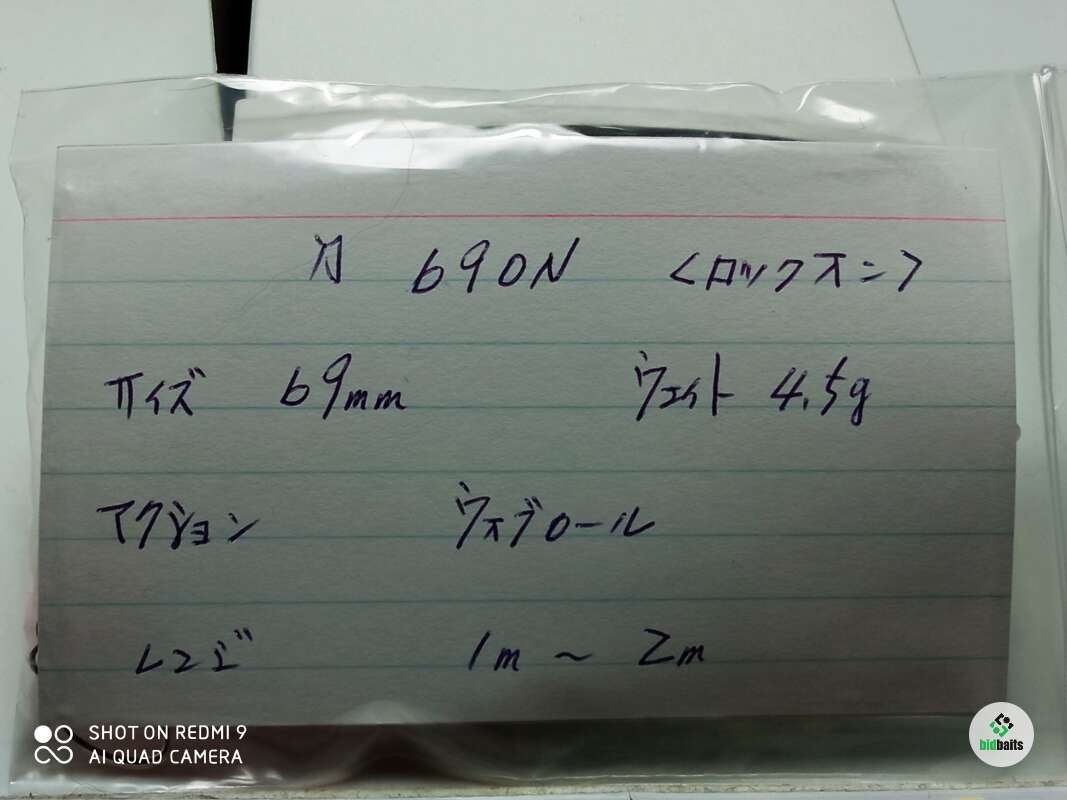 69ON <ロックオン>
サイズ 69mm ウェイト 4.5g
アクション ウォブロール
レンジ 1m ~ 2m
SHOT ON REDMI 9
AI QUAD CAMERA
bidbaits